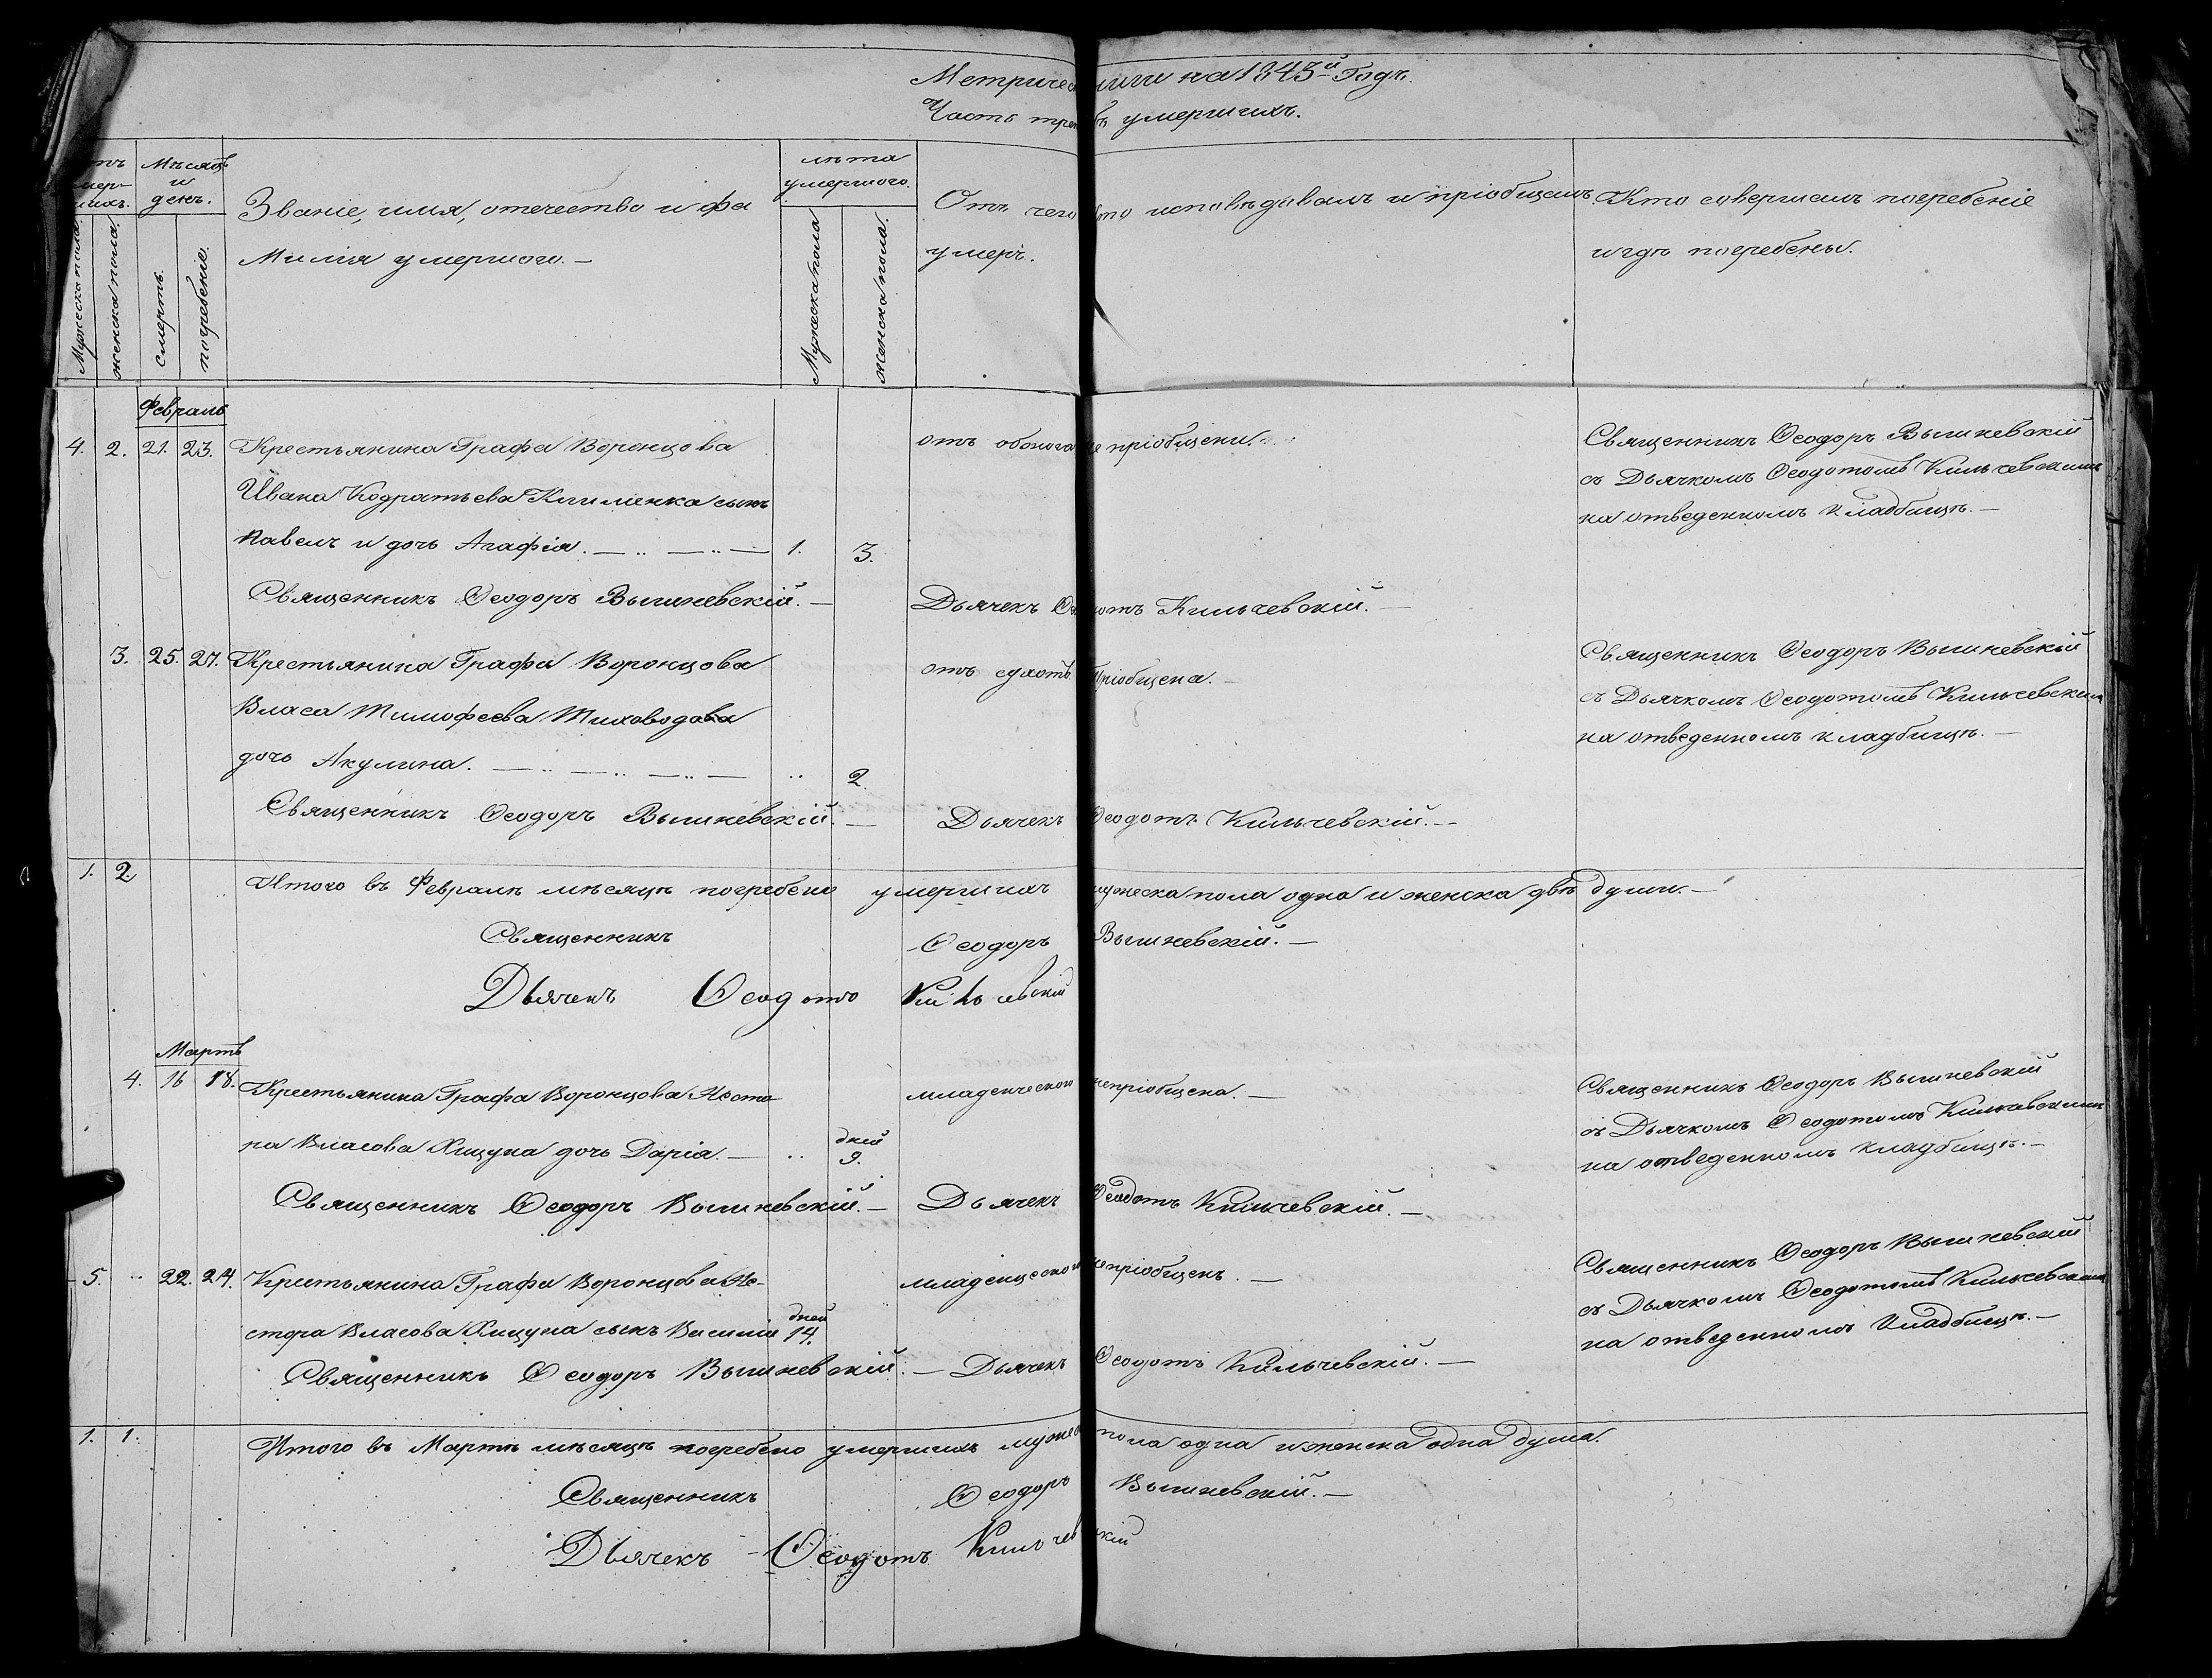 Метриче ниги на 1843й Годъ.
Часть тре ъ умершихъ.
Мѣсяцъ и день.
Званіе, имя, отечество и фа
милія умершого. –
лѣта умершого.
Отъ чего
умеръ.
то исповѣдывалъ и пріобщалъ.
Кто совершалъ погребеніе
и гдѣ погребены.
Мужеска пола.
женска пола.
смерть.
погребеніе.
Мужеска пола
женска пола.
Февраль
4. 2. 21. 23. Крестьянина Графа Воронцова
Ивана Кодратьева Клименка сынъ
Павелъ и дочь Агафія. 1. 3.
отъ не пріобщени.
Священникъ Ѳеодоръ Вышневскій
съ Дьячкомъ Ѳеодотомъ Кильчевскимъ
на отведенномъ кладбищѣ. –
Священникъ Ѳеодоръ Вышневскій. – Дьячекъ Ѳе отъ Кильчевскій. –
3. 25. 27. Крестьянина Графа Воронцова
Власа Тимофеева Тиховодова
дочь Акулина. 2.
отъ сухотъ Пріобщена. –
Священникъ Ѳеодоръ Вышневскій
съ Дьячкомъ Ѳеодотомъ Кильчевским
на отведенномъ кладбищѣ. –
Священникъ Ѳеодоръ Вышневскій. – Дьячекъ Ѳеодотъ Кильчевскій. –
1. 2. Итого въ Февралѣ мѣсяцѣ погребено умершихъ мужеска пола одна и женска двѣ души. –
Священникъ Ѳеодоръ Вышневскій. –
Дьячекъ Ѳеодотъ Кильчевскій
Мартъ
4. 16 18. Крестьянина Графа Воронцова Несто
ра Власова Хицуна дочь Дарія. – дней 9.
младенческой непріобщена. –
Священникъ Ѳеодоръ Вышневскій
съ Дьячкомъ Ѳеодотомъ Кильчевскимъ
на отведенномъ кладбищѣ. –
Священникъ Ѳеодоръ Вышневскій. – Дьячекъ Ѳеодотъ Кильчевскій. –
5. 22. 24. Крестьянина Графа Воронцова Не-
стора Власова Хицуна сынъ Василій дней 14.
младенческой непріобщенъ. –
Священникъ Ѳеодоръ Вышневскій
съ Дьячкомъ Ѳеодотомъ Кильчевским
на отведенномъ кладбищѣ. –
Священникъ Ѳеодоръ Вышневскій. – Дьячекъ Ѳеодотъ Кильчевскій. –
1. 1. Итого въ Мартѣ мѣсяцѣ погребено умершихъ мужес пола одна и женска одна душа.
Священникъ Ѳеодоръ Вышневскій. –
Дьячекъ Ѳеодотъ Кильчевскій